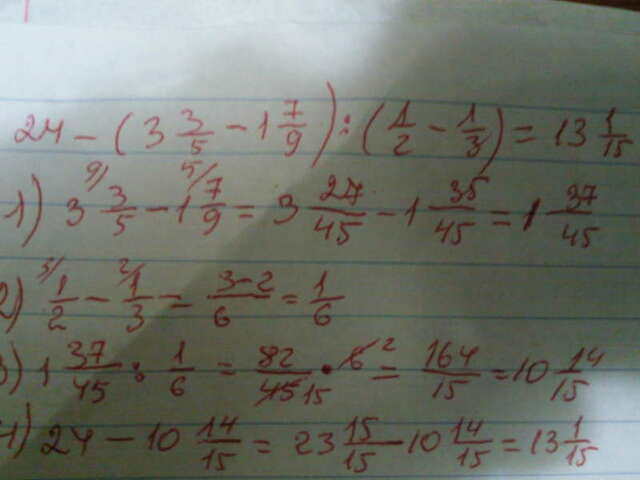 24 - (3 3/5 - 1 7/9) : (1/2 - 1/3) = 13 1/15
1) 3 3/5 (9/) - 1 7/9 (5/) = 3 27/45 - 1 35/45 = 1 37/45
2) 1/2 (3/) - 1/3 (2/) = 3-2/6 = 1/6
3) 1 37/45 : 1/6 = 82/45 15 · 6 2 = 164/15 = 10 14/15
4) 24 - 10 14/15 = 23 15/15 - 10 14/15 = 13 1/15